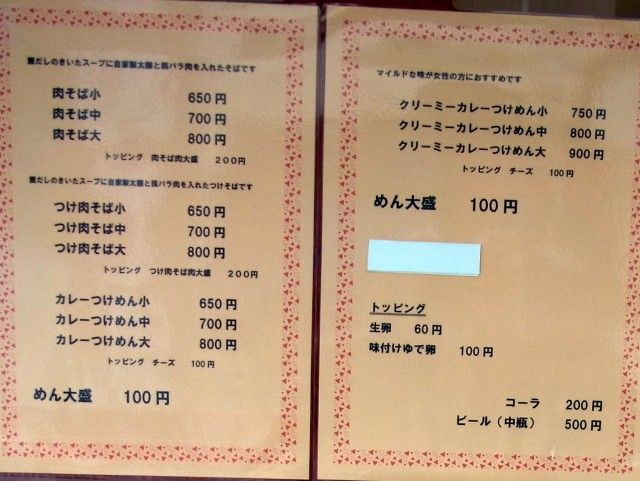 鰹だしのきいたスープに自家製太麺と豚バラ肉を入れたそばです
肉そば小 650円
肉そば中 700円
肉そば大 800円
トッピング 肉そば肉大盛 200円
鰹だしのきいたスープに自家製太麺と豚バラ肉を入れたつけそばです
つけ肉そば小 650円
つけ肉そば中 700円
つけ肉そば大 800円
トッピング つけ肉そば肉大盛 200円
カレーつけめん小 650円
カレーつけめん中 700円
カレーつけめん大 800円
トッピング チーズ 100円
めん大盛 100円
マイルドな味が女性の方におすすめです
クリーミーカレーつけめん小 750円
クリーミーカレーつけめん中 800円
クリーミーカレーつけめん大 900円
トッピング チーズ 100円
めん大盛 100円
トッピング
生卵 60円
味付けゆで卵 100円
コーラ 200円
ビール（中瓶） 500円